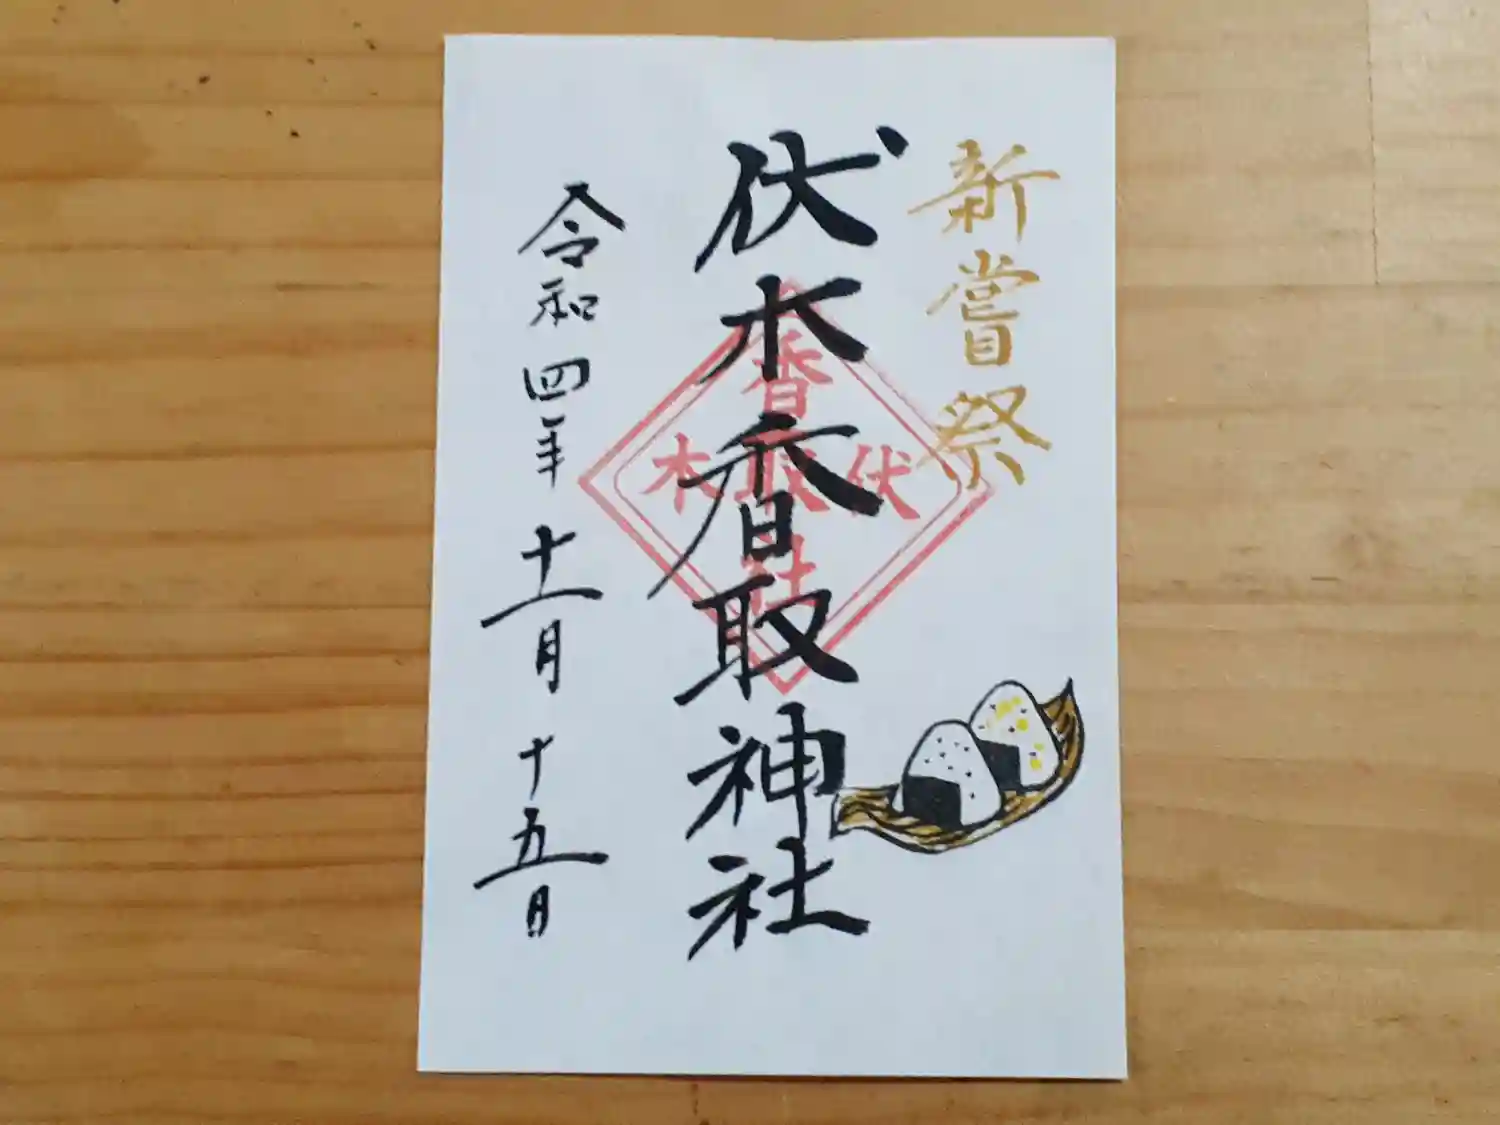 新嘗祭
伏木香取神社
香取社
伏木
令和四年十一月十五日